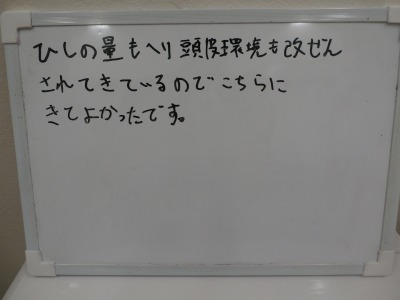 ひしの量もへり頭皮環境も改ぜん
されてきているのでこちらに
きてよかったです。